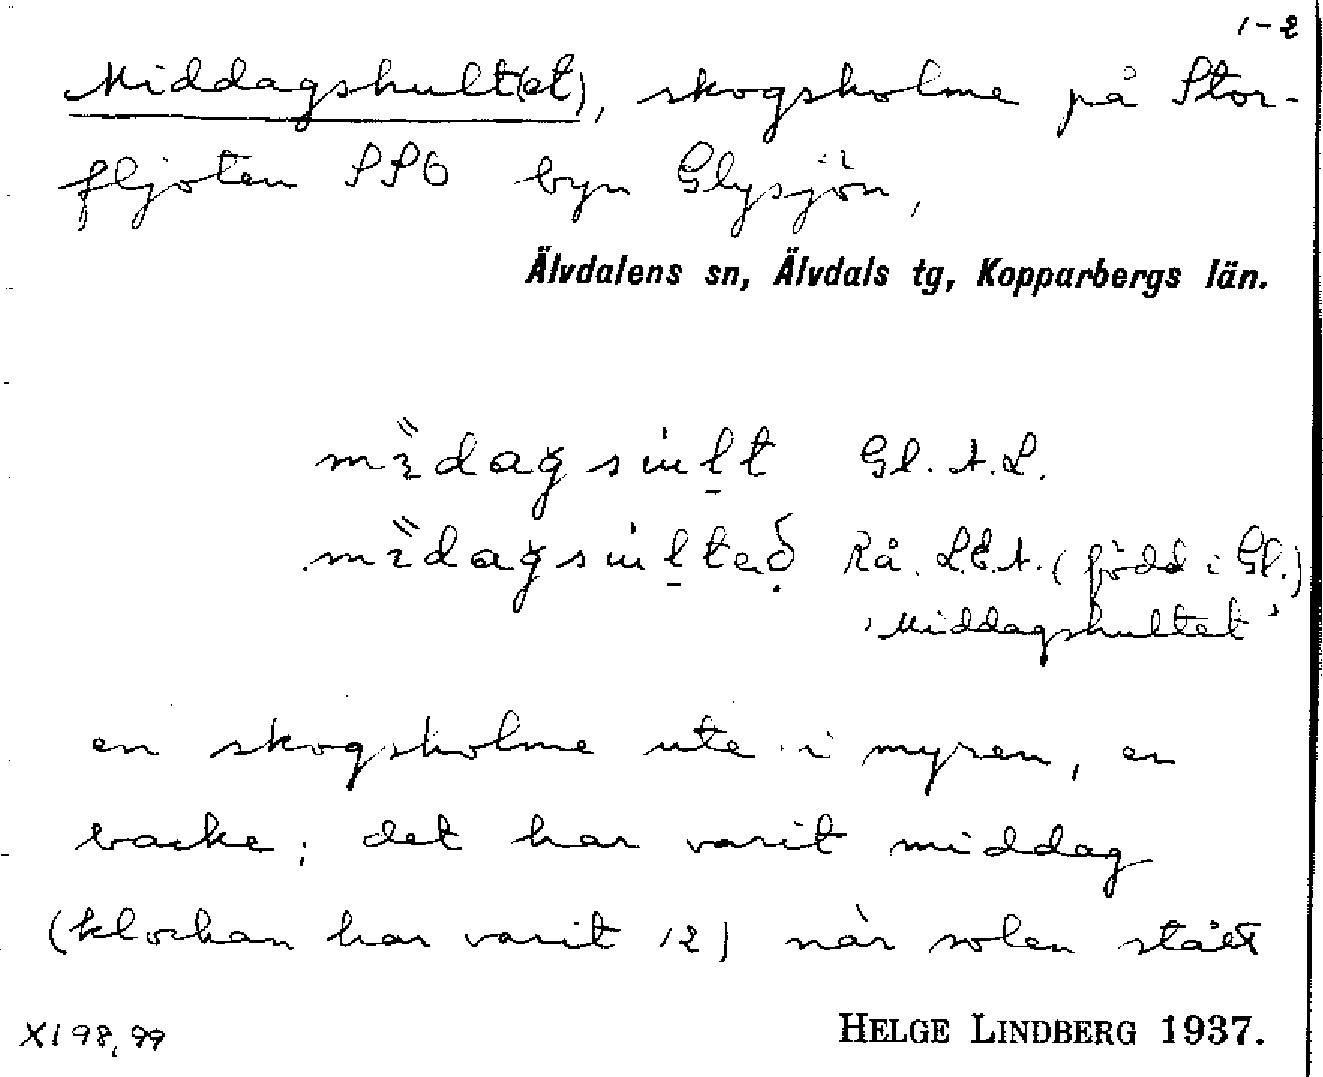 1-2
Middagshult(et), skogsholme på Stor-
fljoten SSO byn Glysjön,
Älvdalens sn, Älvdals tg, Kopparbergs län.
Gl. A.L.
Rå. L.E.A. (född i Gl.)
'Middagshultet'
en skogsholme ute i myren, en
backe; det har varit middag
(klockan har varit 12) när solen stått
XI 98, 99
HELGE LINDBERG 1937.